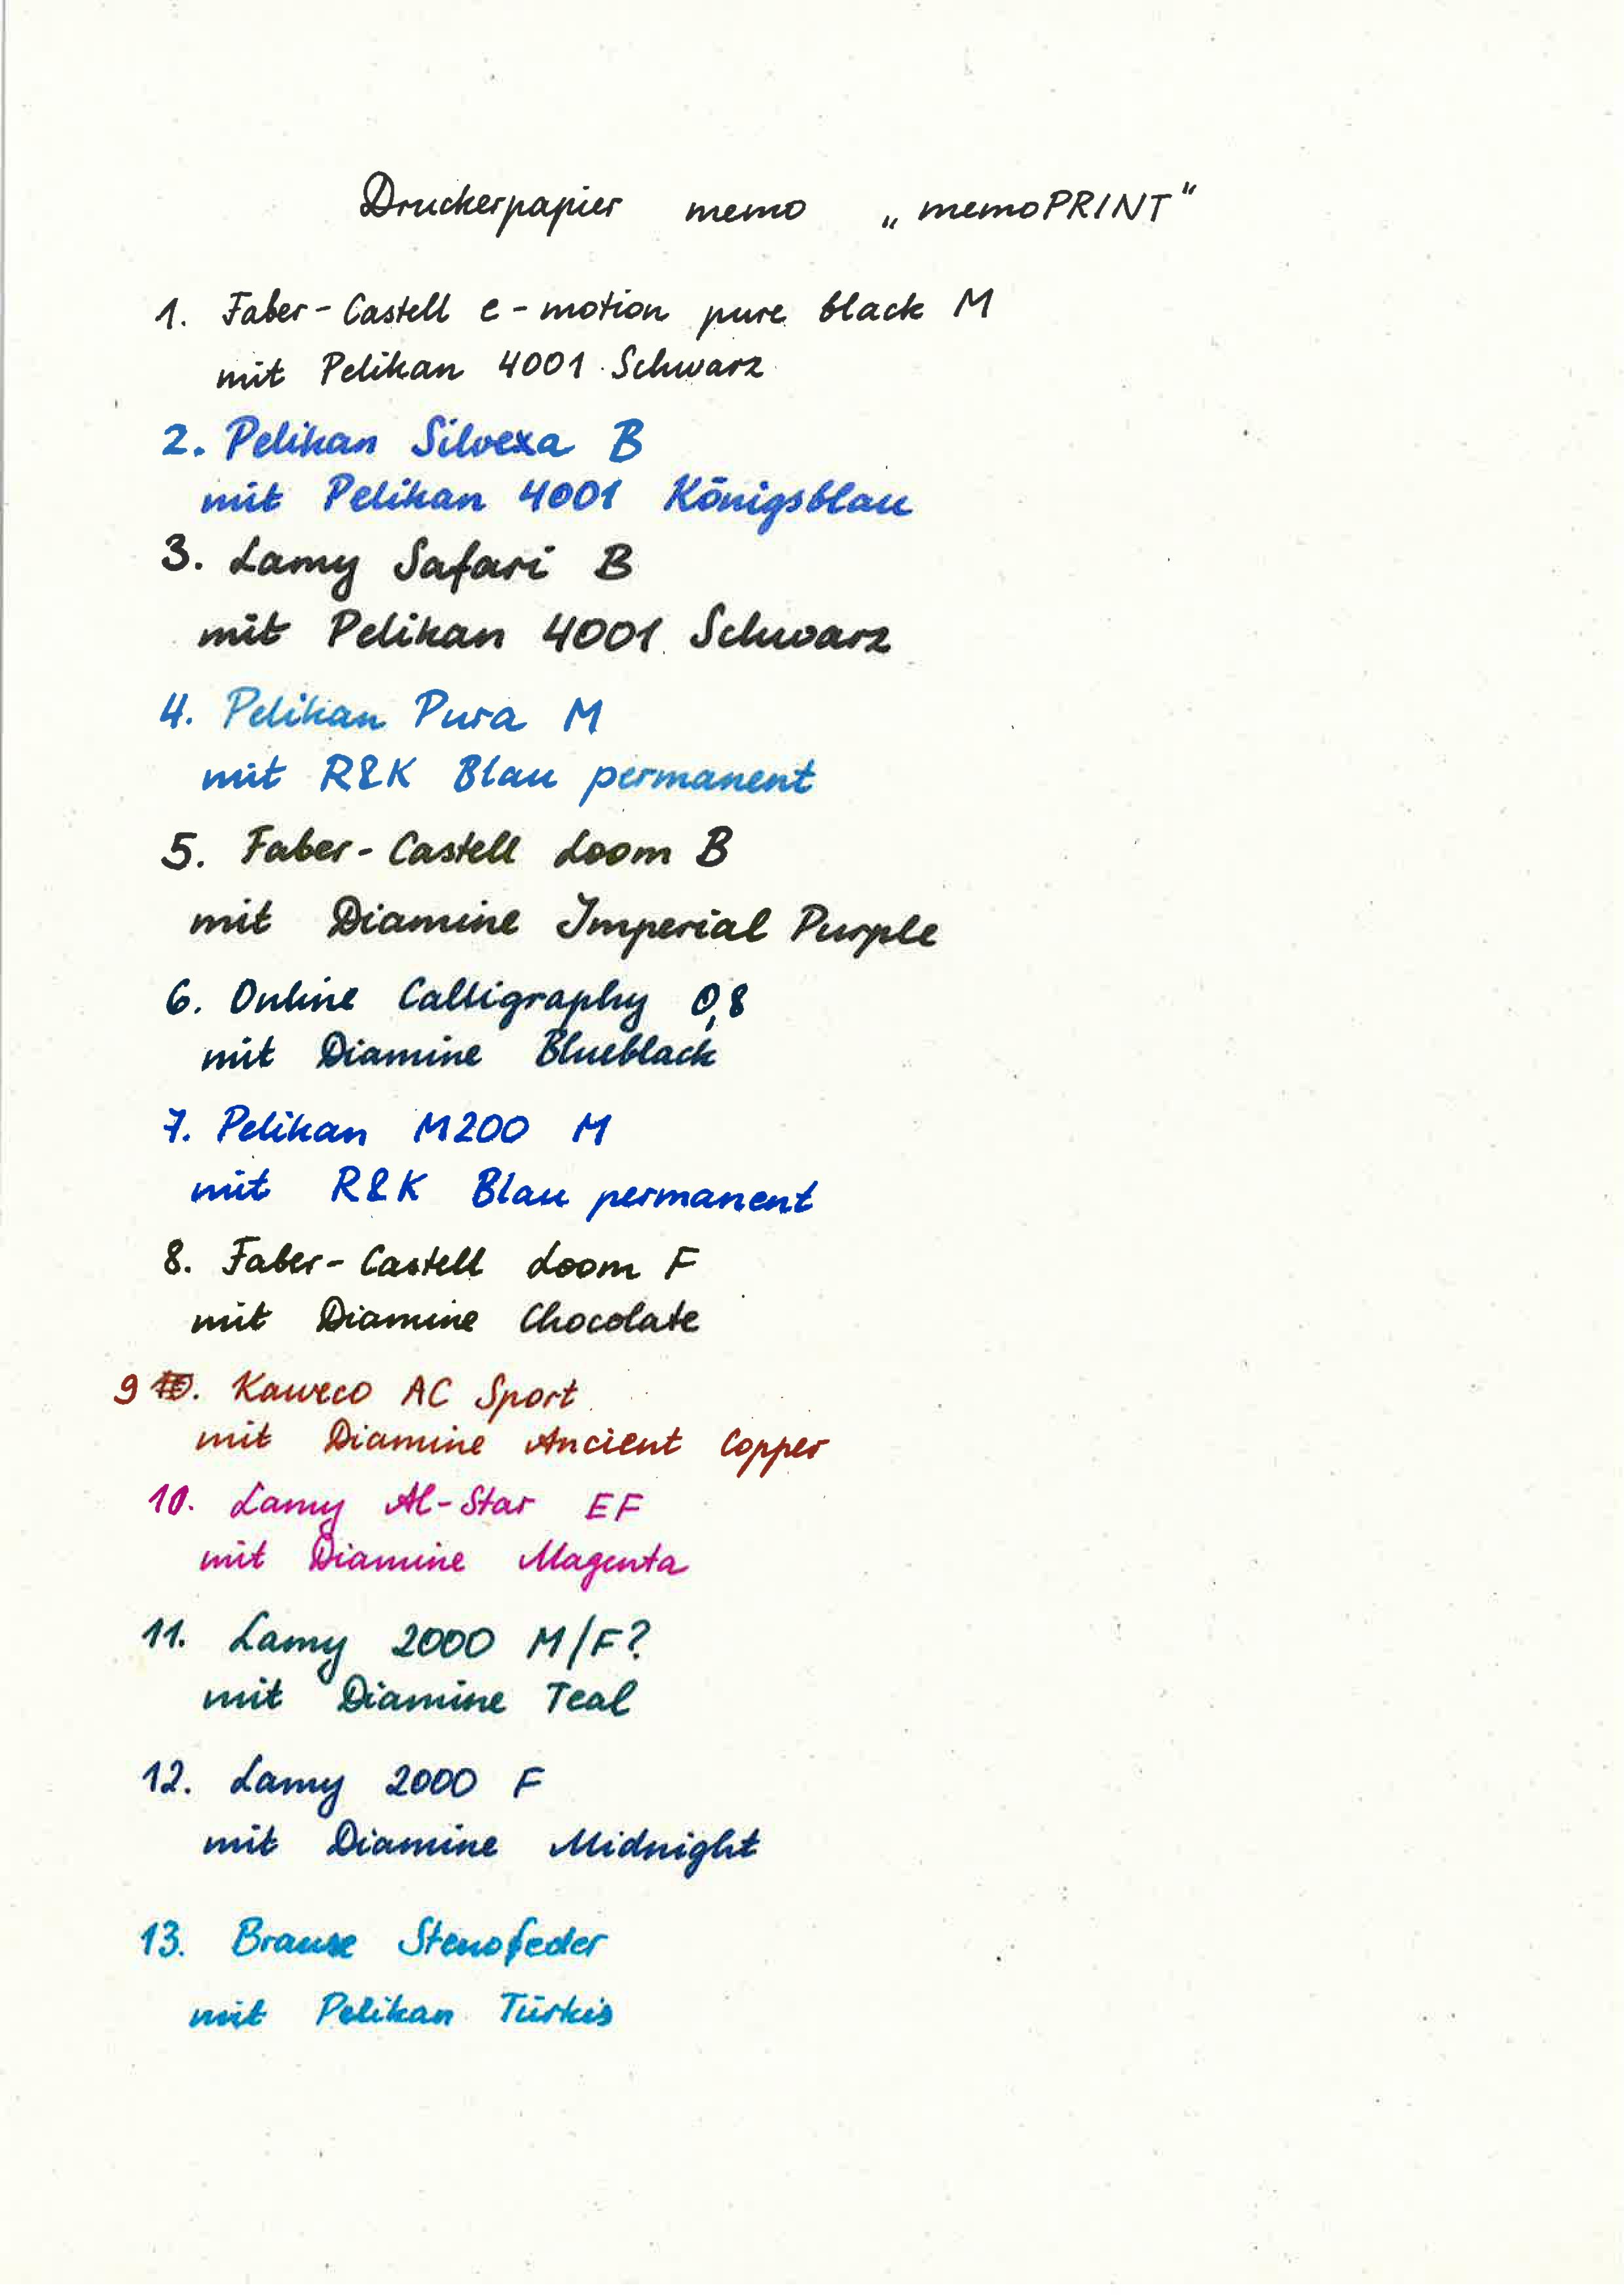 Druckerpapier memo „memoPRINT“
1. Faber-Castell e-motion pure black M
mit Pelikan 4001 Schwarz
2. Pelikan Silvexa B
mit Pelikan 4001 Königsblau
3. Lamy Safari B
mit Pelikan 4001 Schwarz
4. Pelikan Pura M
mit R&K Blau permanent
5. Faber-Castell Loom B
mit Diamine Imperial Purple
6. Online Calligraphy 0,8
mit Diamine Blueblack
7. Pelikan M200 M
mit R&K Blau permanent
8. Faber-Castell Loom F
mit Diamine Chocolate
9 10. Kaweco AC Sport
mit Diamine Ancient Copper
10. Lamy Al-Star EF
mit Diamine Magenta
11. Lamy 2000 M/F?
mit Diamine Teal
12. Lamy 2000 F
mit Diamine Midnight
13. Brause Stenofeder
mit Pelikan Türkis